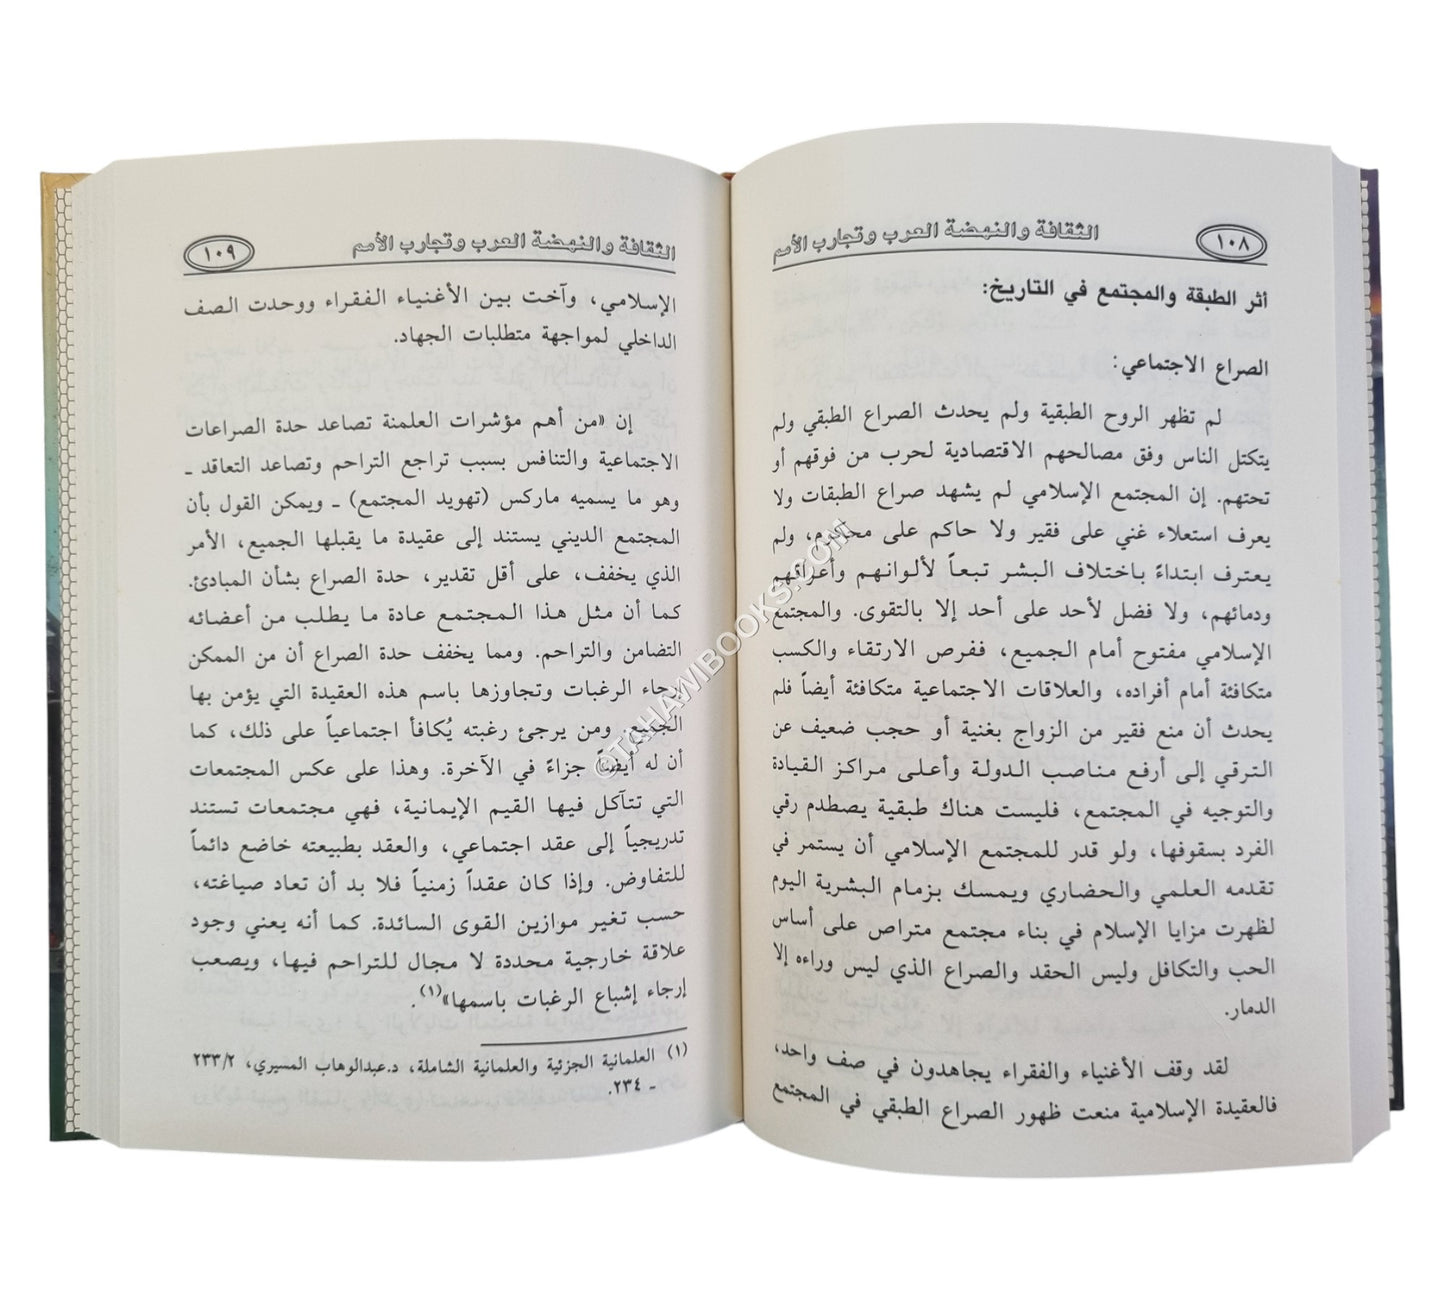 ١٠٨
الثقافة والنهضة العرب وتجارب الأمم
أثر الطبقة والمجتمع في التاريخ:
الصراع الاجتماعي:
لم تظهر الروح الطبقية ولم يحدث الصراع الطبقي ولم
يتكتل الناس وفق مصالحهم الاقتصادية لحرب من فوقهم أو
تحتهم. إن المجتمع الإسلامي لم يشهد صراع الطبقات ولا
يعرف استعلاء غني على فقير ولا حاكم على محكوم، ولم
يعترف ابتداءً باختلاف البشر تبعاً لألوانهم وأعراقهم
ودمائهم، ولا فضل لأحد على أحد إلا بالتقوى. والمجتمع
الإسلامي مفتوح أمام الجميع، ففرص الارتقاء والكسب
متكافئة أمام أفراده، والعلاقات الاجتماعية متكافئة أيضاً فلم
يحدث أن منع فقير من الزواج بغنية أو حجب ضعيف عن
الترقي إلى أرفع مناصب الدولة وأعلى مراكز القيادة
والتوجيه في المجتمع، فليست هناك طبقية يصطدم رقي
الفرد بسقوفها، ولو قدر للمجتمع الإسلامي أن يستمر في
تقدمه العلمي والحضاري ويمسك بزمام البشرية اليوم
لظهرت مزايا الإسلام في بناء مجتمع متراص على أساس
الحب والتكافل وليس الحقد والصراع الذي ليس وراءه إلا
الدمار.
لقد وقف الأغنياء والفقراء يجاهدون في صف واحد،
فالعقيدة الإسلامية منعت ظهور الصراع الطبقي في المجتمع
الثقافة والنهضة العرب وتجارب الأمم
١٠٩
الإسلامي، وآخت بين الأغنياء الفقراء ووحدت الصف
الداخلي لمواجهة متطلبات الجهاد.
إن «من أهم مؤشرات العلمنة تصاعد حدة الصراعات
الاجتماعية والتنافس بسبب تراجع التراحم وتصاعد التعاقد ـ
وهو ما يسميه ماركس (تهويد المجتمع) ـ ويمكن القول بأن
المجتمع الديني يستند إلى عقيدة ما يقبلها الجميع، الأمر
الذي يخفف، على أقل تقدير، حدة الصراع بشأن المبادئ.
كما أن مثل هذا المجتمع عادة ما يطلب من أعضائه
التضامن والتراحم. ومما يخفف حدة الصراع أن من الممكن
إرجاء الرغبات وتجاوزها باسم هذه العقيدة التي يؤمن بها
الجميع. ومن يرجئ رغبته يُكافأ اجتماعياً على ذلك، كما
أن له أيضاً جزاءً في الآخرة. وهذا على عكس المجتمعات
التي تتآكل فيها القيم الإيمانية، فهي مجتمعات تستند
تدريجياً إلى عقد اجتماعي، والعقد بطبيعته خاضع دائماً
للتفاوض. وإذا كان عقداً زمنياً فلا بد أن تعاد صياغته،
حسب تغير موازين القوى السائدة. كما أنه يعني وجود
علاقة خارجية محددة لا مجال للتراحم فيها، ويصعب
إرجاء إشباع الرغبات باسمها»(١).
(١) العلمانية الجزئية والعلمانية الشاملة، د.عبدالوهاب المسيري، ٢٣٣/٢
ـ ٢٣٤.
©TAHAWIBOOKS.COM